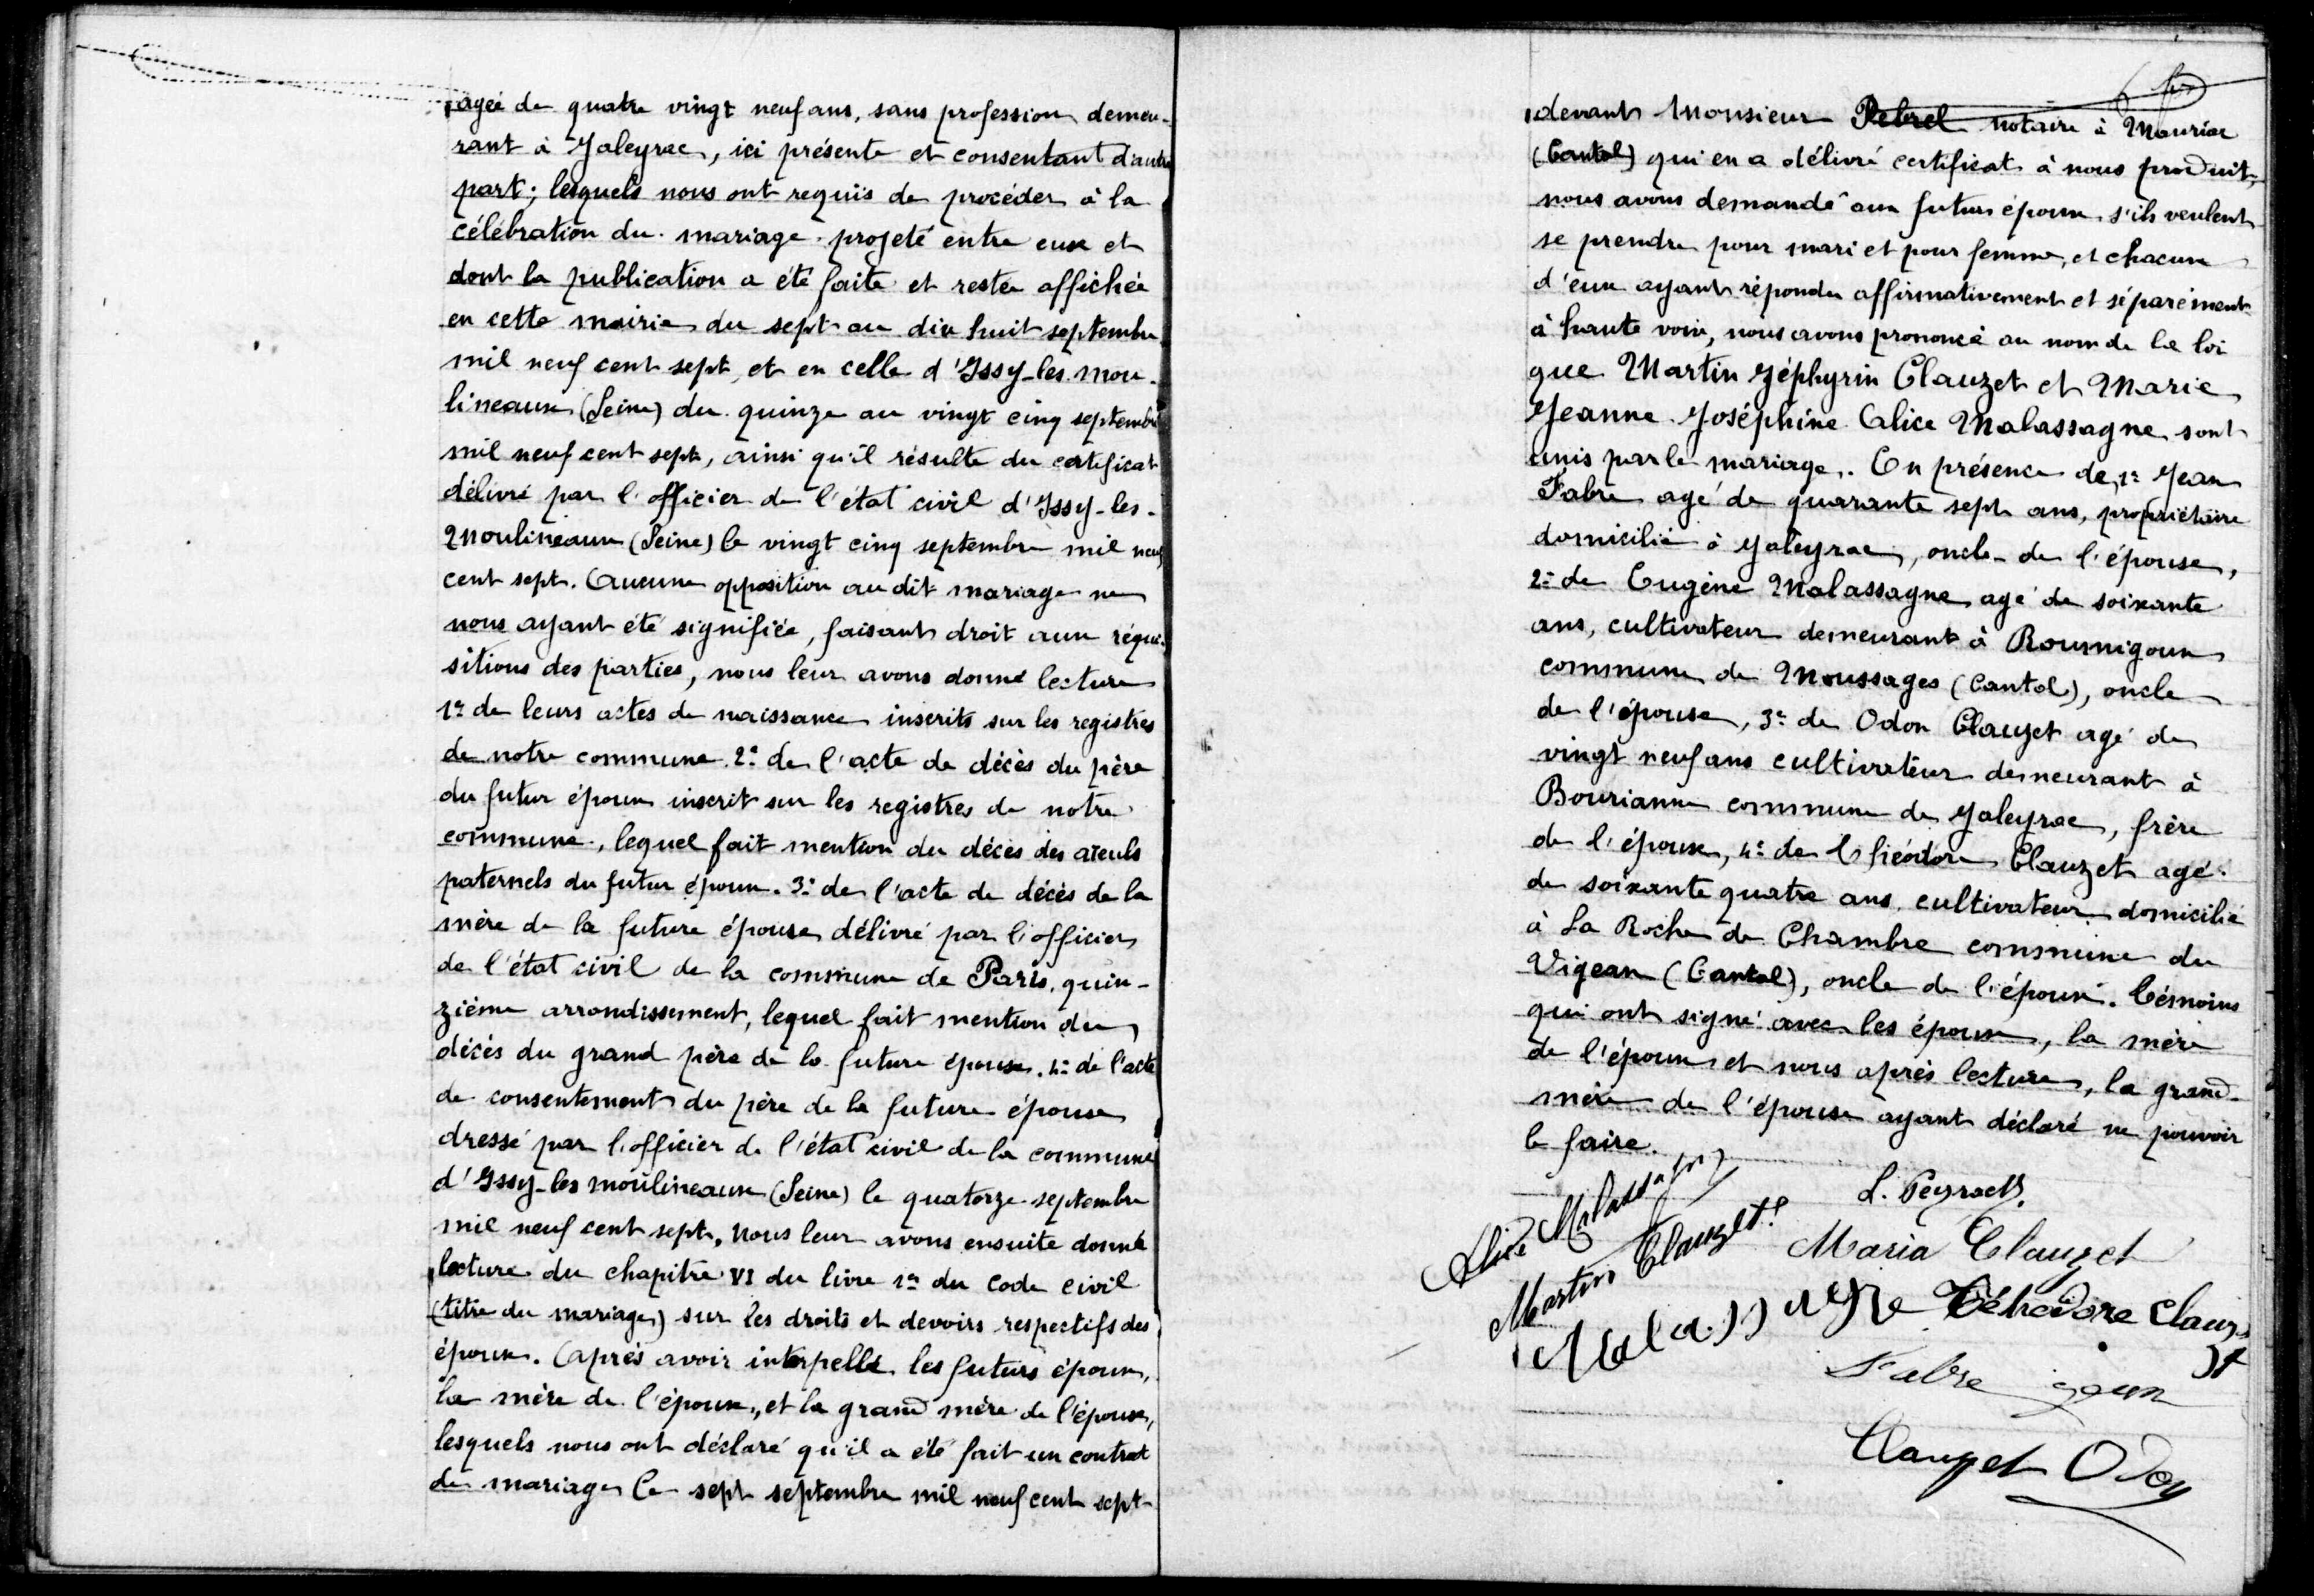 agée de quatre vingt neuf ans, sans profession demeu-
rant à Jaleyrac, ici présente et consentant d'autre
part; lesquels nous ont requis de procéder à la
célébration du mariage projeté entre eux et
dont la publication a été faite et restée affichée
en cette mairie du sept au dix huit septembre
mil neuf cent sept, et en celle d'Issy-les-mou-
lineaux (Seine) du quinze au vingt cinq septembre
mil neuf cent sept, ainsi qu'il résulte du certificat
délivré par l'officier de l'état civil d'Issy-les-
Moulineaux (Seine) le vingt cinq septembre mil neuf
cent sept. Aucune opposition au dit mariage ne
nous ayant été signifiée, faisant droit aux réqui-
sitions des parties, nous leur avons donné lecture
1º de leurs actes de naissance inscrits sur les registres
de notre commune. 2º de l'acte de décès du père
du futur époux inscrit sur les registres de notre
commune, lequel fait mention du décès des aïeuls
paternels du futur époux. 3º de l'acte de décès de la
mère de la future épouse délivré par l'officier
de l'état civil de la commune de Paris, quin-
zième arrondissement, lequel fait mention du
décès du grand père de la future épouse. 4º de l'acte
de consentement du père de la future épouse
dressé par l'officier de l'état civil de la commune
d'Issy-les moulineaux (Seine) le quatorze septembre
mil neuf cent sept, nous leur avons ensuite donné
lecture du chapitre VI du livre 1er du code civil
(titre du mariage) sur les droits et devoirs respectifs des
époux. Après avoir interpellé les futurs époux,
la mère de l'époux, et la grand mère de l'épouse,
lesquels nous ont déclaré qu'il a été fait un contrat
de mariage le sept septembre mil neuf cent sept
devant Monsieur Pebrel notaire à Mauriac
(Cantal) qui en a délivré certificat à nous produit,
nous avons demandé aux futurs époux s'ils veulent
se prendre pour mari et pour femme, et chacun
d'eux ayant répondu affirmativement et séparément
à haute voix, nous avons prononcé au nom de la loi
que Martin Zéphyrin Clauzet et Marie
Jeanne Joséphine Alice Malassagne sont
unis par le mariage. En présence de, 1º Jean
Fabre agé de quarante sept ans, propriétaire
domicilié à Jaleyrac, oncle de l'épouse,
2º de Eugène Malassagne, agé de soixante
ans, cultivateur demeurant à Roumigoux
commune de Moussages (Cantal), oncle
de l'épouse, 3º de Odon Clauzet agé de
vingt neuf ans cultivateur demeurant à
Bourianne commune de Jaleyrac, frère
de l'époux, 4º de Théodore Clauzet agé
de soixante quatre ans, cultivateur domicilié
à La Roche de Chambre commune du
Vigean (Cantal), oncle de l'époux. Témoins
qui ont signé avec les époux, la mère
de l'époux et nous après lecture, la grand
mère de l'épouse ayant déclaré ne pouvoir
le faire.
L. Peyrac
Alice Malassagne
Martin Clauzet
Maria Clauzet
Malassagne Théhodore Clauzet
Fabre jean
Clauzet Odon